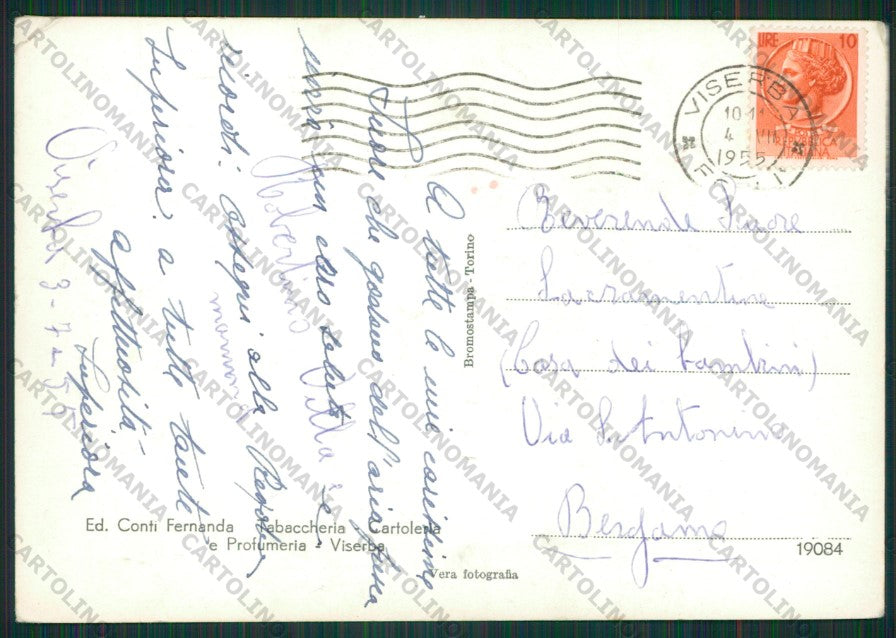 LIRE 10
VISERBA
10-11
4
1955
Reverende Suore
Sacramentine
(Casa dei bambini)
Via S. Antonino
Bergamo
19084
Bromostampa - Torino
Vera fotografia
Ed. Conti Fernanda - Tabaccheria - Cartoleria
e Profumeria - Viserba
A tutte le mie carissime
Suore che godono dell'aria
un caro saluto e
ricordi. Ossequi alla
Superiora. a tutte tante
affettuosità
Superiora
Viserba 3-7-55
CARTOLINOMANIA